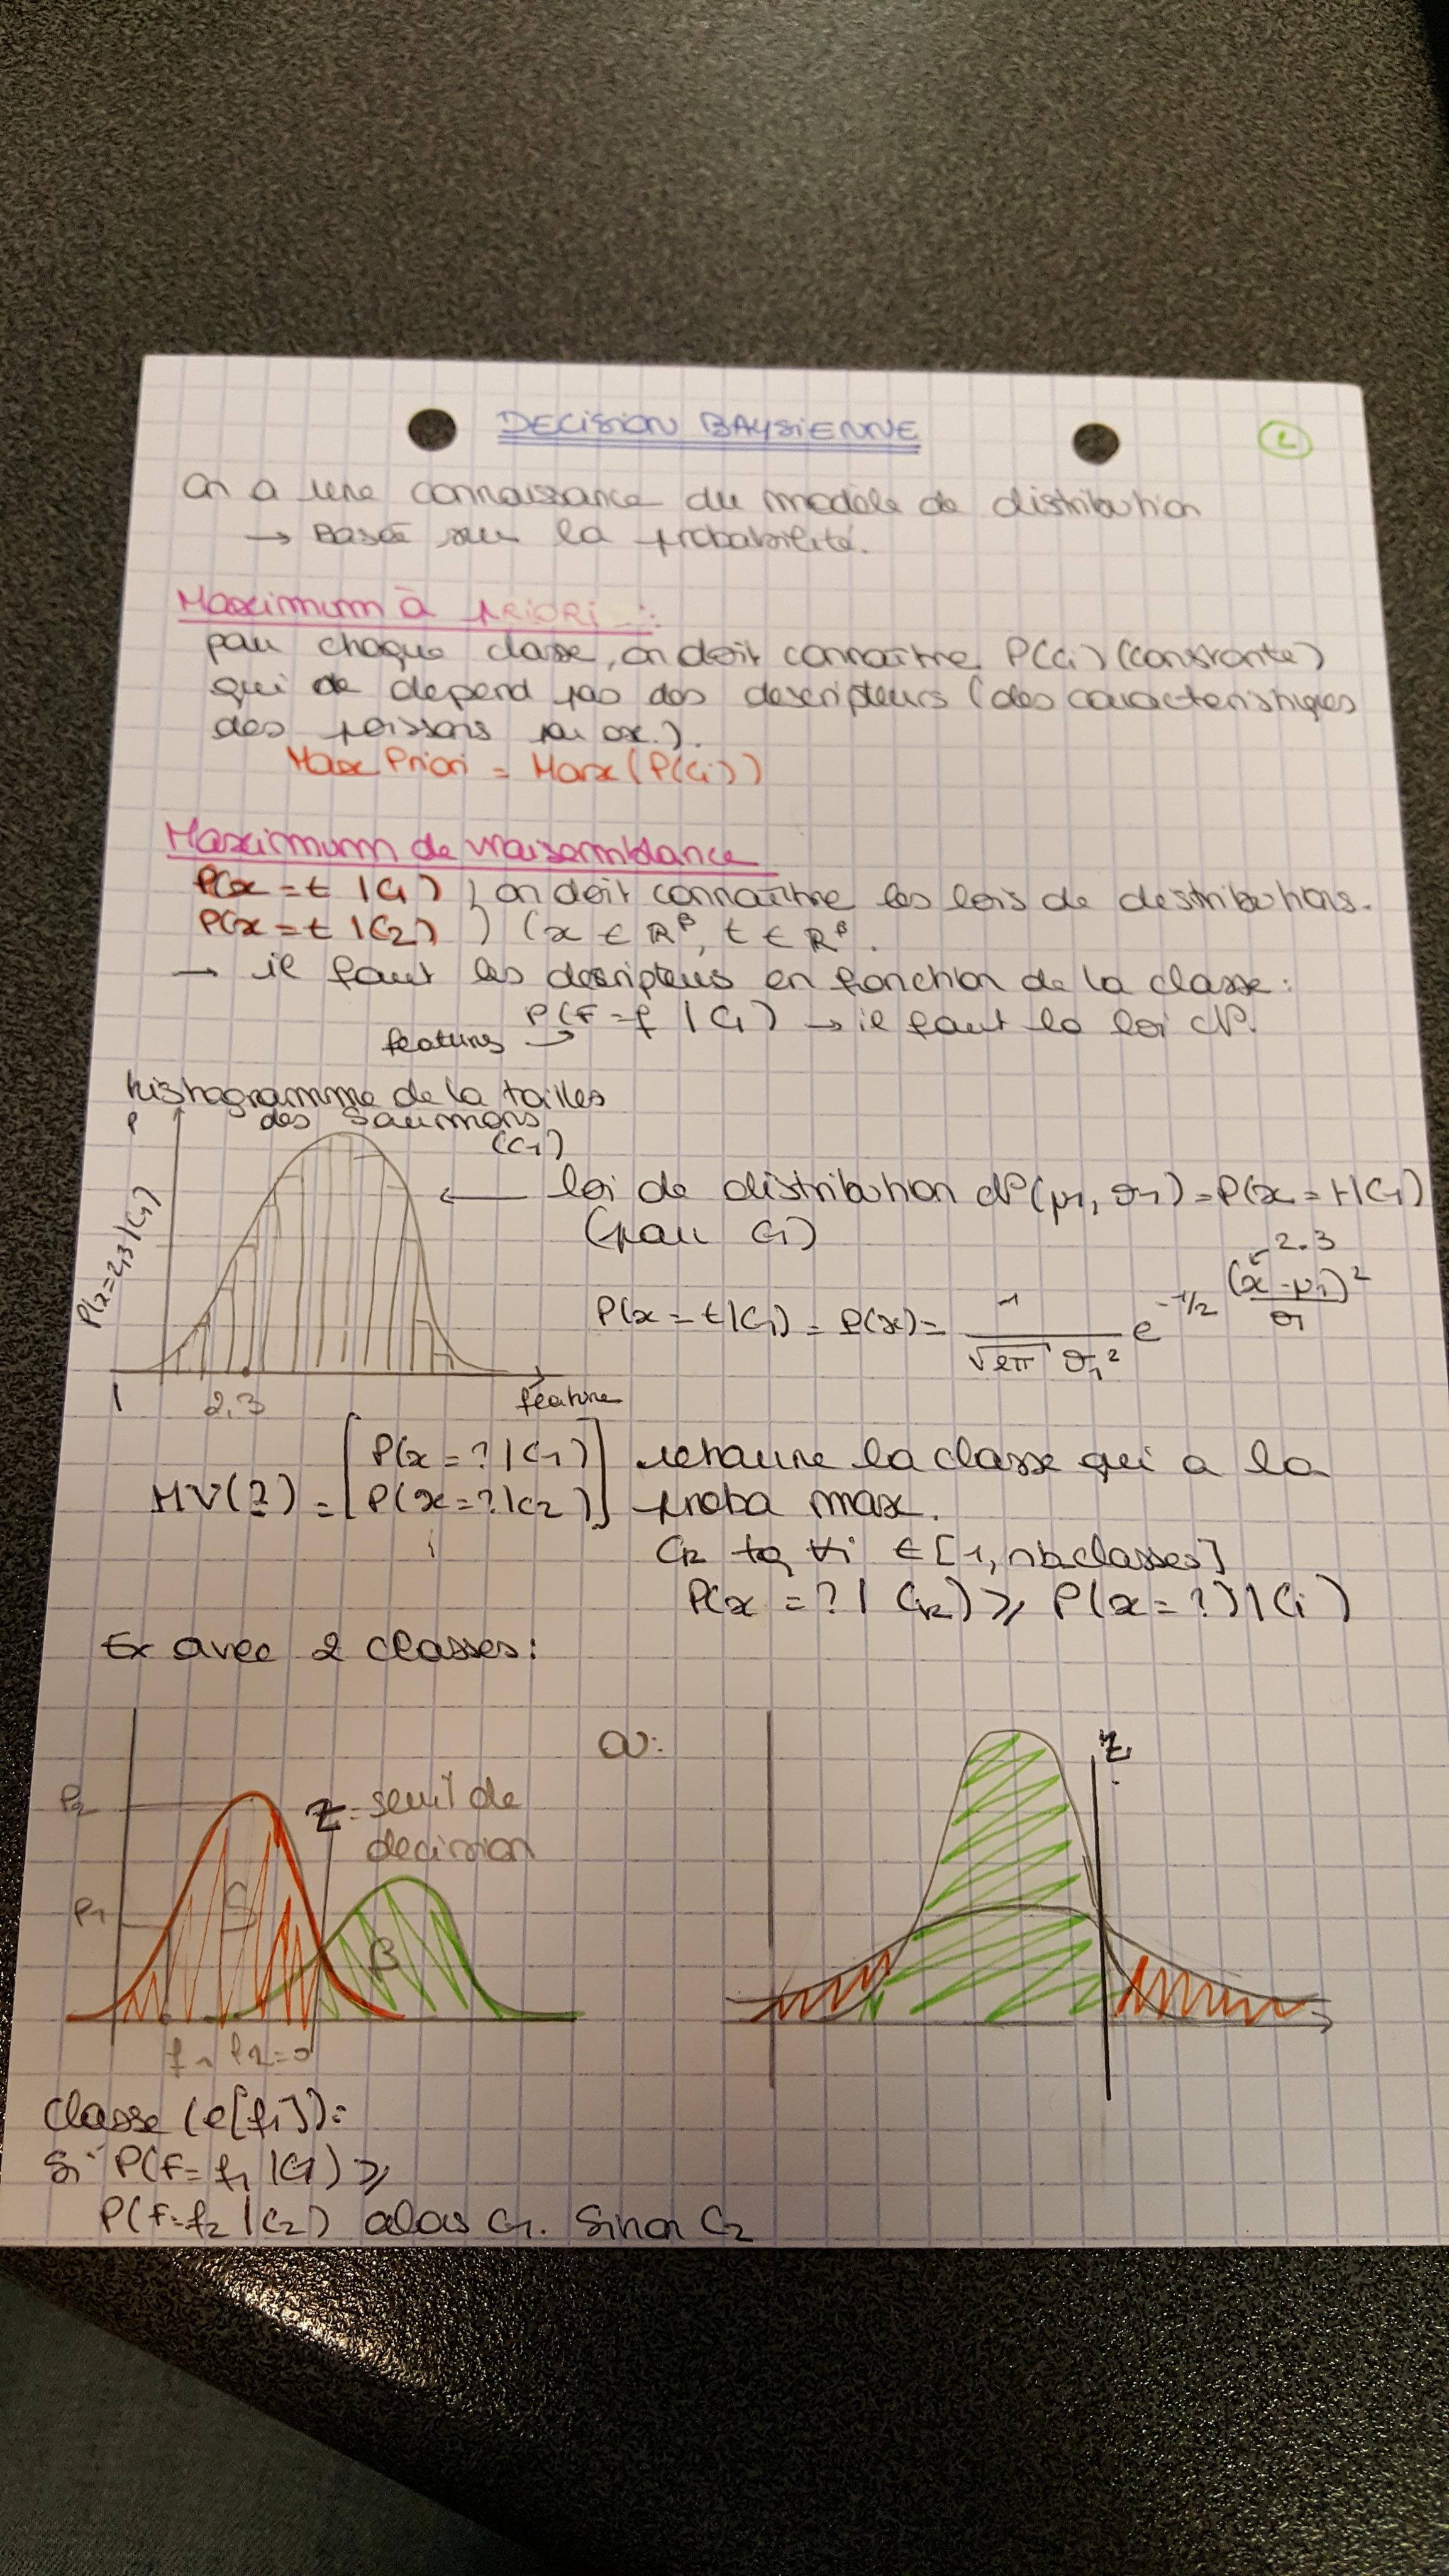 DECISION BAYSIENNE
2
On a une connaissance du modèle de distribution
→ Basée sur la probabilité.
Maximum à PRIORI :
pour chaque classe, on doit connaître P(Ci) (constante)
qui ne depend pas des descripteurs (des caracteristiques
des poissons par ex.).
Max Priori = Max (P(Ci))
Maximum de vraisemblance
P(x = t | C1) ) on doit connaître les lois de distributions.
P(x = t | C2) ) (x ∈ ℝᵝ, t ∈ ℝᵝ.
→ il faut les descripteurs en fonction de la classe :
P(F = f | C1) → il faut la loi N.
features →
histogramme de la tailles
des saumons
(C1)
P
P(x=2,3|C1)
← loi de distribution N(μ1, σ1) = P(x = t|C1)
(pour C1)
2.3
P(x = t|C1) = P(x) = 1 / √2π σ1² e -1/2 (x - μ1)² / σ1
1
2,3
feature
MV(?) = [P(x = ? | C1) P(x = ? | C2)] retourne la classe qui a la
proba max.
Ck tq ∀i ∈ [1, nb classes]
P(x = ? | Ck) ≥ P(x = ?) | Ci)
Ex avec 2 classes :
ou :
Z = seuil de
decision
Z
P2
P1
S
B
f1 P2=0
classe (e[f1]) :
Si P(F = f1 | C1) ≥
P(F=f2 | C2) alors C1. Sinon C2